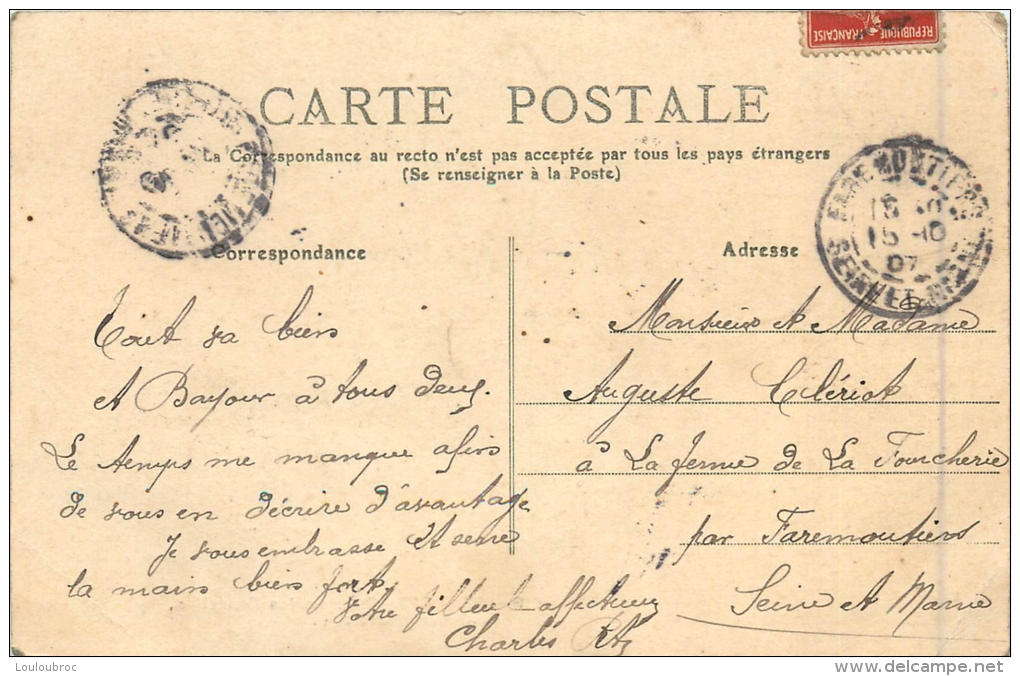 RÉPUBLIQUE FRANÇAISE
CARTE POSTALE
La Correspondance au recto n'est pas acceptée par tous les pays étrangers
(Se renseigner à la Poste)
FAREMOUTIERS
15 -10
07
SEINE ET MARNE
Correspondance
Tout va bien
et Bonjour à tous deux.
Le temps me manque afin
de vous en décrire d'avantage
Je vous embrasse et serre
la main bien fort
Votre filleul affectueux
Charles
Adresse
Monsieur et Madame
Auguste Clériot
à La ferme de La Fourcherie
par Faremoutiers
Seine et Marne
Louloubroc
delcampe.net